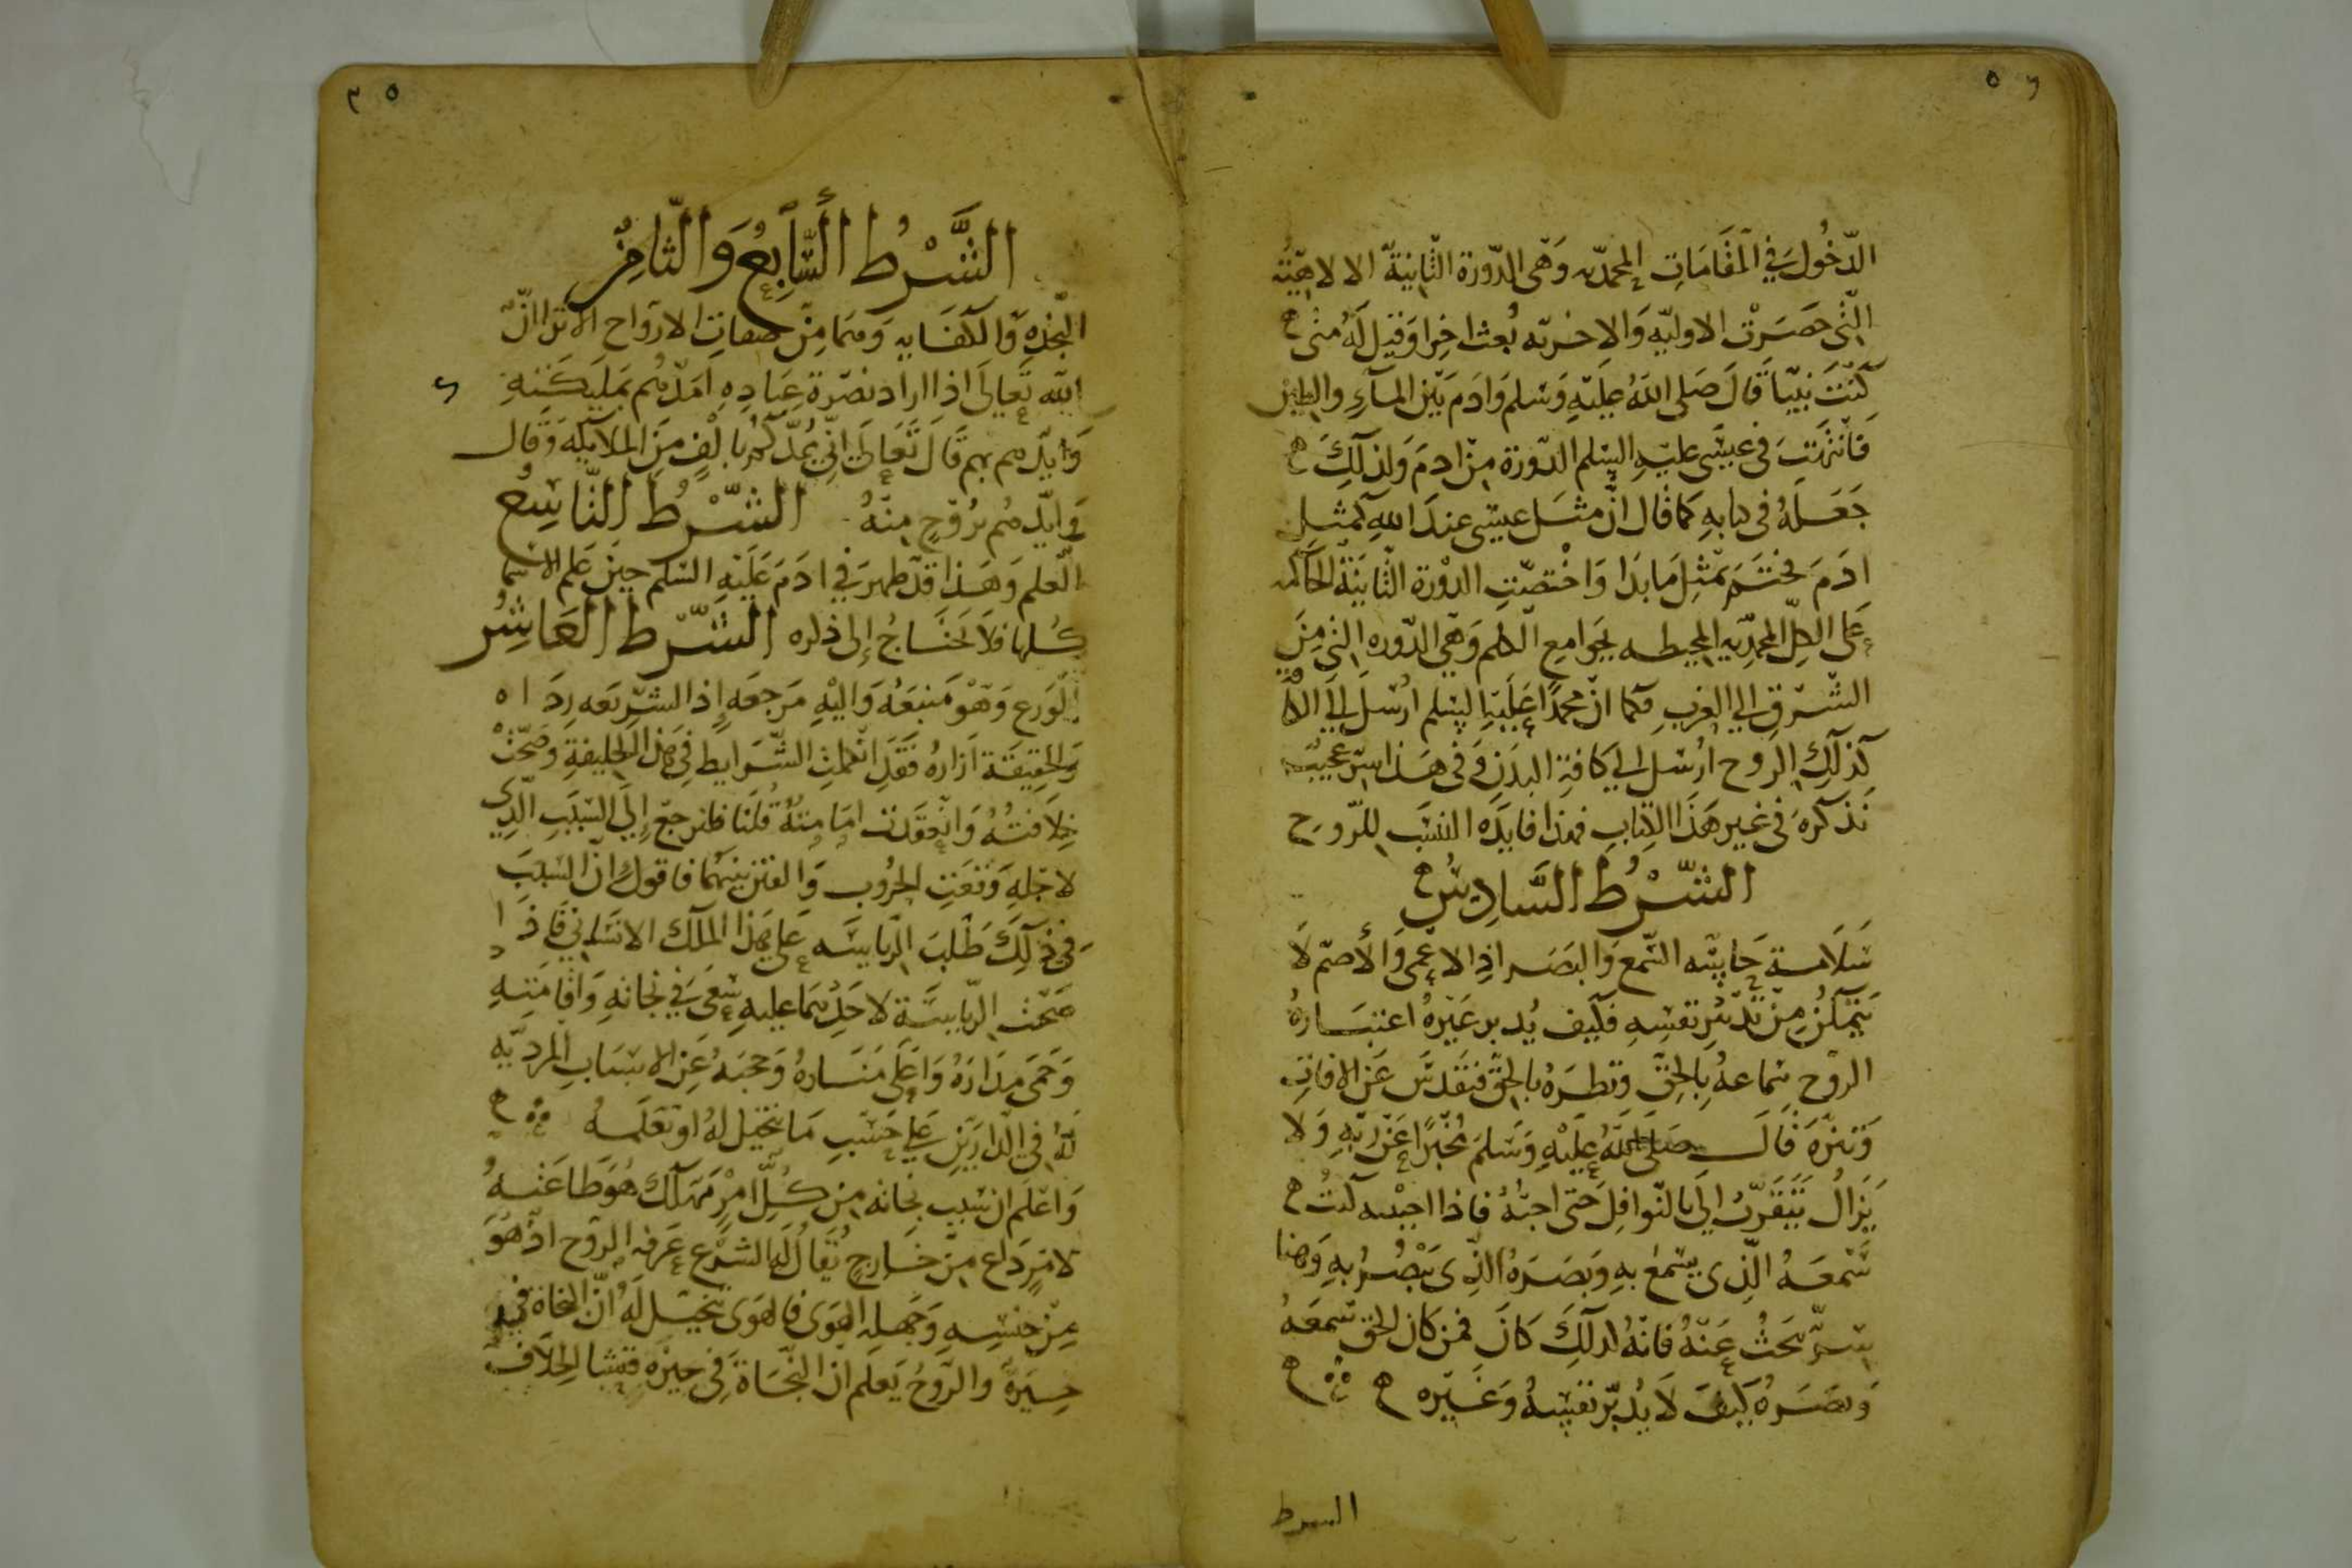 ٥٢
الدّخُولَ في المقَامَاتِ المحمديه وَهى الدّورة الثّانيَة الالاهيّة
التى حصَرَتْ الاوليّه وَالاخريّه بُعث اخِرا وَقيل لَهُ متى
كنْتَ نبيّاً قَالَ صَلى اللهُ عليْهِ وَسَلمَ وَادمَ بَيْن المآءِ والطين
فانتهَت فى عيسَى عليْهِ السّلم الدّورة مِنْ ادمَ وَلذلكَ
جَعَلَهُ فى كتابهِ كما قَال انّ مثَل عيسَى عندَ اللهِ كمثلِ
ادَمَ فختَمَ بمثِل مَا بدَا وَاخْتصّتِ الدوْرة الثّانيَة الحَاكمه
عَلى الكلّ المحمدِيّه المحيطه بجوَامعِ الكلم وَهي الدّوره التي مِنَ
الشّرقِ الي الغربِ فكما انّ محمدًا عَليْهِ السّلم ارُسْل الي الكافة
كذلكَ الروح ارُسْل الي كافةِ البدَنِ وَفى هَذا سرّ عجيْب
نَذكرهَ فى غير هَذَا الكتابِ فهذا فايدَه النسَب للرّوح
الشّرْطُ السَّادِسُ
سَلَامة حَاسّه السّمع وَالبَصَر اذِ الاعْمى وَالأصمّ لَا
يَتمكنُ مِنْ تدْبيْرِ نفسِهِ فكيف يُدبر غَيْرهُ اعتبَارهُ
الروْح سَماعهُ بالحقّ ونظرَهُ بالحقّ فتَقدسَ عَن الافاتِ
وَتنزّهَ قَالَ صَلى اللهُ عليْهِ وَسَلمَ مخُبرًا عَنْ ربّهِ وَلا
يَزَالُ يَتَقَرّبُ اِليَ بالنّوافِلَ حَتى احِبّهُ فاذا احببته كنتُ
سَمعَهُ الّذِى يسْمعُ بهِ وَبصَرَهُ الذِى يَبْصُرُ بهِ وَهنا
سرٌّ بحَثُ عَنْهُ فانّهُ لذلكَ كانَ فمن كان الحق سَمعَهُ
وَبصَرهُ كيفَ لَا يُدبّر نفسهُ وَغَيره
السرط
٥٣
الشَّرْطُ السَّابِعُ وَالثّامِنُ
النّجدَهِ وَالكفَايه وَهمَا مِنْ صفاتِ الارْوَاح الاترا انّ
اللّه تَعالىَ اذا ارَاد نصْرة عِبَادِهِ امَدّهُم بمَليكَتهِ
وَايّدهم بهم قَالَ تَعَالىَ انّى مُمدّكم بالْفٍ مِنَ الملايكه وَقال
وَايّدهُم برُوْحٍ مِنْهُ الشّرْطُ التَّاسِعُ
العلم وَهَذا قَدْ ظهرَ في ادَمَ عَليْهِ السّلم حِيْنَ عَلم الاسْما
كلهَا فلَا نحتَاجُ إلى ذكره الشّرْط العَاشِر
الوَرع وَهْوَ مَنبَعَهُ وَاليْهِ مَرجعَه إذ الشّرِيَعه ردَاه
وَالحقِيقَة ازارهُ فقَد انحملتْ الشّرَايطِ فى هذا الخليفةِ وَصَحّتْ
خِلافتُهُ وَانعقدت امَامتهُ قُلنَا فلنرجعْ إلَى السّبَبِ الّذِى
لاجْلهِ وَقعَتِ الحرُوب وَالفتن بَينهُمَا فاقول انّ السَببَ
فى ذلكَ طَلبَ الرّيَاسَه عَلى هَذا الملك الانسَانى فَاذا
صَحّت الرّيَاسَة لاحَدِهمَا عليهِ سَعَى في نجَاتهِ وَاقامَتهِ
وَحَمى مِدَارَهُ وَاعْلَى مَنَارهُ وَحجبَهُ عَن الاسْبَابِ المرديّه
لهُ فى الدّاريْنِ عَلى حَسْبِ مَا تخيّل لهُ او تعلَمهُ
وَاعْلَم انّ سَبب نجاته مِن كلِّ امْرٍ مُهلك هُوَ طَاعَتهُ
لامْرٍ دَاع مِنْ خَارجٍ يُقَالُ لهِ الشرْع عَرفه الروْح اذ هُوَ
مِنْ جنسِهِ وَجهلهُ الهَوَى فالهَوَى تخيّل لَهُ انّ النّجاة فى
حيزهُ وَالرّوْحُ يَعلم انّ النّجَاة فى حيزه فنشا الخِلافُ